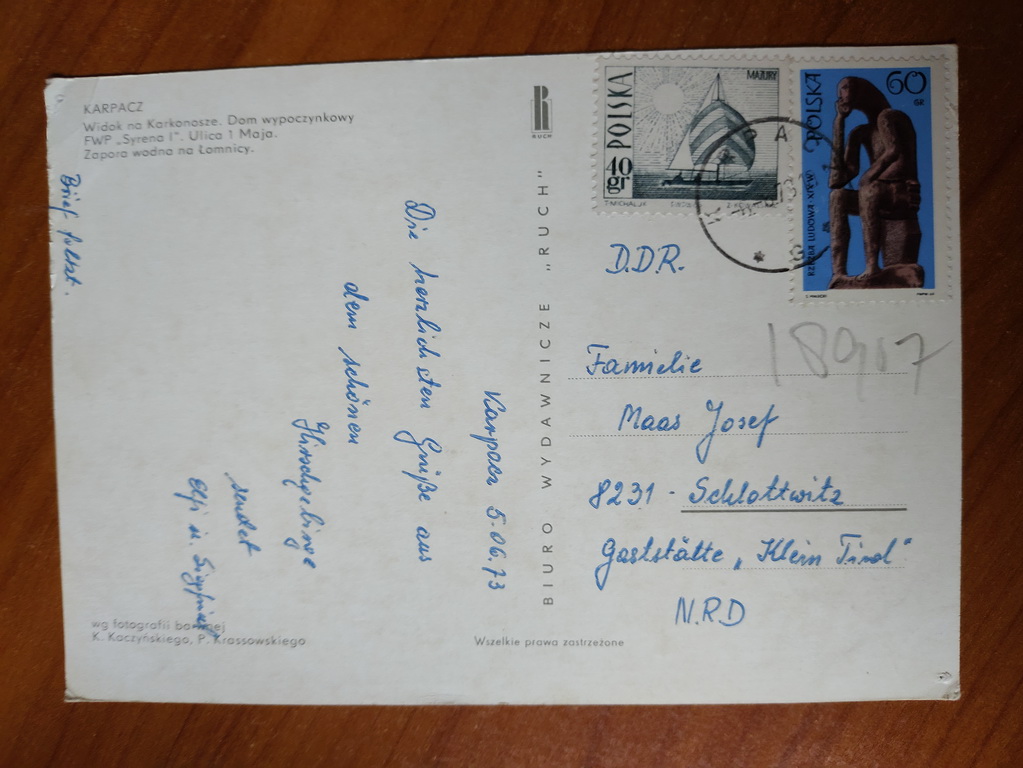 KARPACZ
Widok na Karkonosze. Dom wypoczynkowy
FWP „Syrena I”. Ulica 1 Maja.
Zapora wodna na Łomnicy.
RUCH
POLSKA
MAZURY
40 gr
POLSKA
60 GR
RZEŹBA LUDOWA
Brief folgt.
Karpacz 5.06.73
Die herzlichsten Grüße aus
dem schönen
sendet
BIURO WYDAWNICZE „RUCH”
D.D.R.
18907
Familie
Maas Josef
8231 - Schlottwitz
Gaststätte „Klein Tirol“
N.R.D
wg fotografii barwnej
K. Kaczyńskiego, P. Krassowskiego
Wszelkie prawa zastrzeżone